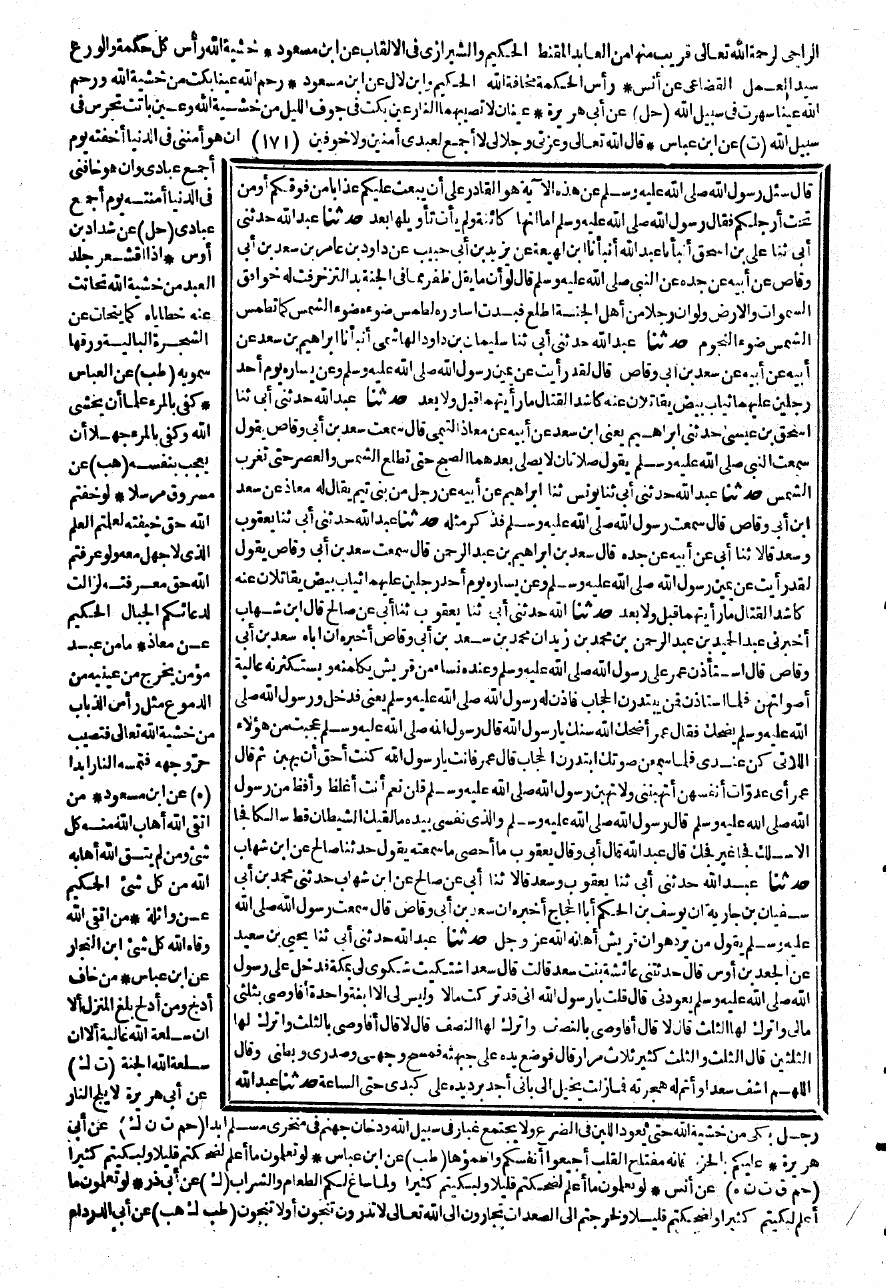 الراجى لرحمة الله تعالى قريب منها من العابد المقنط الحكيم والشيرازى فى الالقاب عن ابن مسعود * خشية الله رأس كل حكمة والورع
سيد العمل القضاعى عن أنس * رأس الحكمة مخافة الله الحكيم وابن لال عن ابن مسعود * رحم الله عينا بكت من خشية الله ورحم
الله عينا سهرت فى سبيل الله (حل) عن أبى هريرة * عينان لا تصيبهما النار عين بكت فى جوف الليل من خشية الله وعين باتت تحرس فى
سبيل الله (ت) عن ابن عباس * قال الله تعالى وعزتى وجلالى لا أجمع لعبدى أمنين ولا خوفين (١٧١) ان هو أمننى فى الدنيا أخفته يوم
أجمع عبادى وان هو خافنى
فى الدنيا أمنته يوم أجمع
عبادى (حل) عن شداد بن
أوس * اذا اقشعر جلد
العبد من خشية الله تحاتت
عنه خطاياه كما يتحات عن
الشجرة البالية ورقها
سمويه (طب) عن العباس
* كفى بالمرء علما أن يخشى
الله وكفى بالمرء جهلا أن
يعجب بنفسه (هب) عن
مسروق مرسلا * لو خفتم
الله حق خيفته لعلمتم العلم
الذى لا جهل معه ولو عرفتم
الله حق معرفته لزالت
لدعائكم الجبال الحكيم
عن معاذ * ما من عبد
مؤمن يخرج من عينيه من
الدموع مثل رأس الذباب
من خشية الله تعالى فتصيب
حر وجهه فتمسه النار ابدا
(ه) عن ابن مسعود * من
اتقى الله أهاب الله منه كل
شئ ومن لم يتق الله أهابه
الله من كل شئ الحكيم
عن واثلة * من اتقى الله
وقاه الله كل شئ ابن النجار
عن ابن عباس * من خاف
أدلج ومن أدلج بلغ المنزل ألا
ان سلعة الله غالية ألا ان
سلعة الله الجنة (ت ك)
عن أبى هريرة لا يلج النار
قال سئل رسول الله صلى الله عليه وسلم عن هذه الآية هو القادر على أن يبعث عليكم عذابا من فوقكم أو من
تحت أرجلكم فقال رسول الله صلى الله عليه وسلم اما انها كائنة ولم يأت تأويلها بعد حدثنا عبد الله حدثنى
أبى ثنا على بن اسحق أنبأنا عبد الله أنبأنا ابن لهيعة عن يزيد بن أبى حبيب عن داود بن عامر بن سعد بن أبى
وقاص عن أبيه عن جده عن النبى صلى الله عليه وسلم قال لو أن ما يقل ظفر مما فى الجنة بدا لتزخرفت له خوافق
السموات والارض ولو ان رجلا من أهل الجنة اطلع فبدت اساوره لطمس ضوءه ضوء الشمس كما تطمس
الشمس ضوء النجوم حدثنا عبد الله حدثنى أبى ثنا سليمان بن داود الهاشمى أنبأنا ابراهيم بن سعد عن
أبيه عن أبيه عن سعد بن أبى وقاص قال لقد رأيت عن يمين رسول الله صلى الله عليه وسلم وعن يساره يوم أحد
رجلين عليهما ثياب بيض يقاتلان عنه كاشد القتال ما رأيتهما قبل ولا بعد حدثنا عبد الله حدثنى أبى ثنا
اسحق بن عيسى حدثنى ابراهيم يعنى ابن سعد عن أبيه عن معاذ التيمى قال سمعت سعد بن أبى وقاص يقول
سمعت النبى صلى الله عليه وسلم يقول صلاتان لا يصلى بعدهما الصبح حتى تطلع الشمس والعصر حتى تغرب
الشمس حدثنا عبد الله حدثنى أبى ثنا يونس ثنا ابراهيم عن أبيه عن رجل من بنى تيم يقال له معاذ عن سعد
ابن أبى وقاص قال سمعت رسول الله صلى الله عليه وسلم فذكر مثله حدثنا عبد الله حدثنى أبى ثنا يعقوب
وسعد قالا ثنا أبى عن أبيه عن جده قال سعد بن ابراهيم بن عبد الرحمن قال سمعت سعد بن أبى وقاص يقول
لقد رأيت عن يمين رسول الله صلى الله عليه وسلم وعن يساره يوم أحد رجلين عليهما ثياب بيض يقاتلان عنه
كاشد القتال ما رأيتهما قبل ولا بعد حدثنا الله حدثنى أبى ثنا يعقوب ثنا أبى عن صالح قال ابن شهاب
أخبرنى عبد الحميد بن عبد الرحمن بن محمد بن زيد ان محمد بن سعد بن أبى وقاص أخبره ان اباه سعد بن أبى
وقاص قال استأذن عمر على رسول الله صلى الله عليه وسلم وعنده نساء من قريش يكلمنه ويستكثرنه عالية
أصواتهن فلما استاذن قمن يبتدرن الحجاب فاذن له رسول الله صلى الله عليه وسلم يعنى فدخل ورسول الله صلى
الله عليه وسلم يضحك فقال عمر أضحك الله سنك يا رسول الله قال رسول الله صلى الله عليه وسلم عجبت من هؤلاء
اللاتى كن عندى فلما سمعن صوتك ابتدرن الحجاب قال عمر فانت يا رسول الله كنت أحق أن يهبن ثم قال
عمر أى عدوات أنفسهن أتهبننى ولا تهبن رسول الله صلى الله عليه وسلم قلن نعم أنت أغلظ وأفظ من رسول
الله صلى الله عليه وسلم قال رسول الله صلى الله عليه وسلم والذى نفسى بيده ما لقيك الشيطان قط سالكا فجا
الا سلك فجا غير فجك قال عبد الله قال أبى وقال يعقوب ما أحصى ما سمعته يقول حدثنا صالح عن ابن شهاب
حدثنا عبد الله حدثنى أبى ثنا يعقوب وسعد قالا ثنا أبى عن صالح عن ابن شهاب حدثنى محمد بن أبى
سفيان بن جارية ان يوسف بن الحكم أبا الحجاج أخبره ان سعد بن أبى وقاص قال سمعت رسول الله صلى الله
عليه وسلم يقول من يرد هوان قريش أهانه الله عز وجل حدثنا عبد الله حدثنى أبى ثنا يحيى بن سعيد
عن الجعد بن أوس قال حدثتنى عائشة بنت سعد قالت قال سعد اشتكيت شكوى لى بمكة فدخل على رسول
الله صلى الله عليه وسلم يعودنى قال قلت يا رسول الله انى قد تركت مالا وليس لى الا ابنة واحدة أفاوصى بثلثى
مالى واترك لها الثلث قال لا قال أفاوصى بالنصف واترك لها النصف قال لا قال أفاوصى بالثلث واترك لها
الثلثين قال الثلث والثلث كثير ثلاث مرار قال فوضع يده على جبهته فمسح وجهى وصدرى وبطنى وقال
اللهم اشف سعدا وأتم له هجرته فما زلت يخيل الى بانى أجد برد يده على كبدى حتى الساعة حدثنا عبد الله
رجل بكى من خشية الله حتى يعود اللبن فى الضرع ولا يجتمع غبار فى سبيل الله ودخان جهنم فى منخرى مسلم ابدا (حم ت ن ك) عن أبى
هريرة * عليكم بالحزن فانه مفتاح القلب أجيعوا أنفسكم واظمؤها (طب) عن ابن عباس * لو تعلمون ما أعلم لضحكتم قليلا ولبكيتم كثيرا
(حم ق ت ن ه) عن أنس * لو تعلمون ما أعلم لضحكتم قليلا ولبكيتم كثيرا ولما ساغ لكم الطعام والشراب (ك) عن أبى ذر * لو تعلمون ما
أعلم لبكيتم كثيرا ولضحكتم قليلا ولخرجتم الى الصعدات تجارون الى الله تعالى لا تدرون تنجون أو لا تنجون (طب ك هب) عن أبى الدرداء